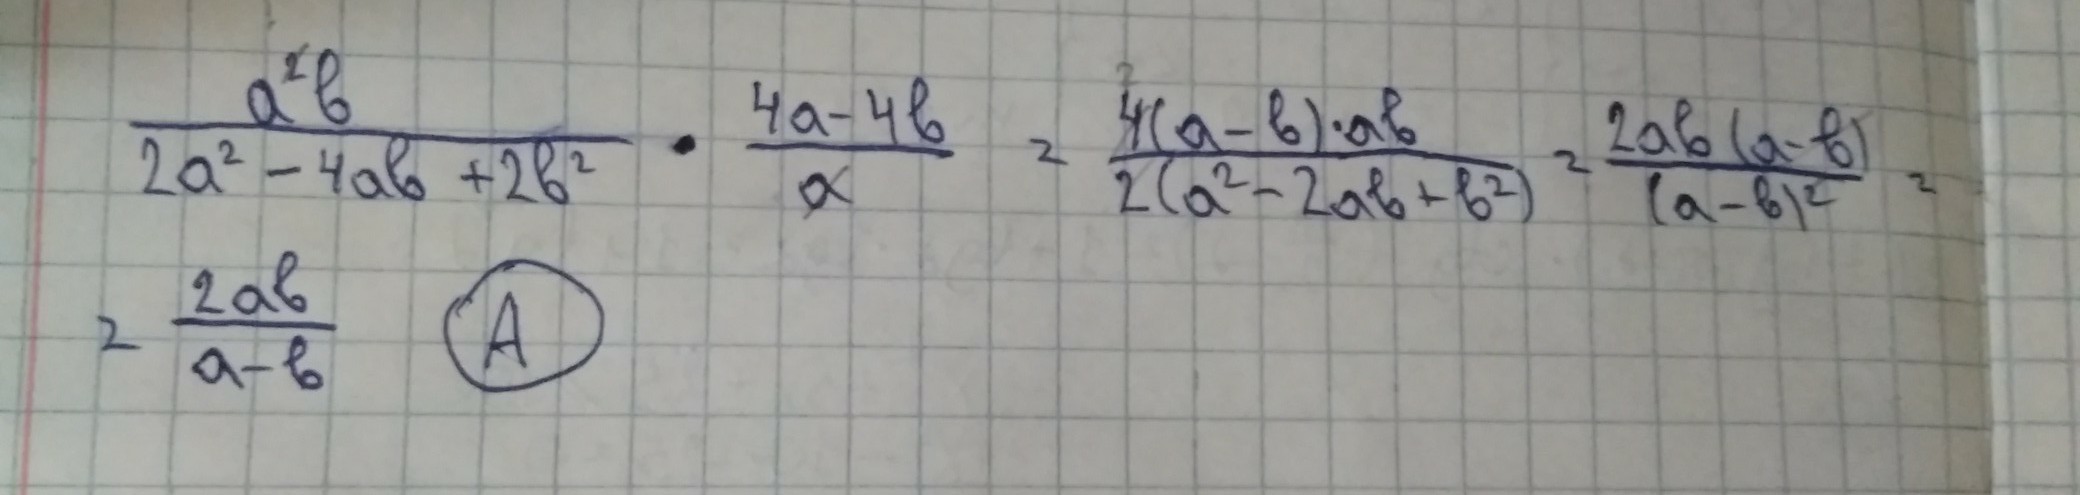 a²b / (2a² - 4ab + 2b²) · (4a - 4b) / a = 4(a - b)·ab / 2(a² - 2ab + b²) = 2ab(a - b) / (a - b)² =
= 2ab / (a - b) A